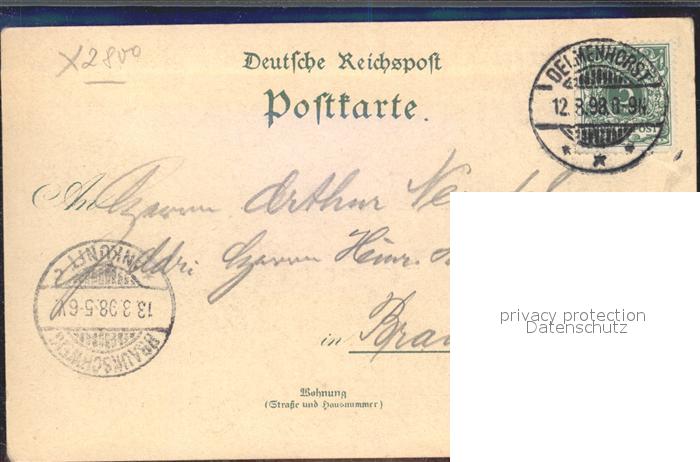 X2800
Deutsche Reichspost
Postkarte.
DELMENHORST
12.3.98.8-9N.
POST
An Herrn Arthur
Herrn Heinr.
ANKUNFT
13.3.98.5-6V.
BRAUNSCHWEIG
in Brau
Wohnung
(Straße und Hausnummer)
privacy protection
Datenschutz